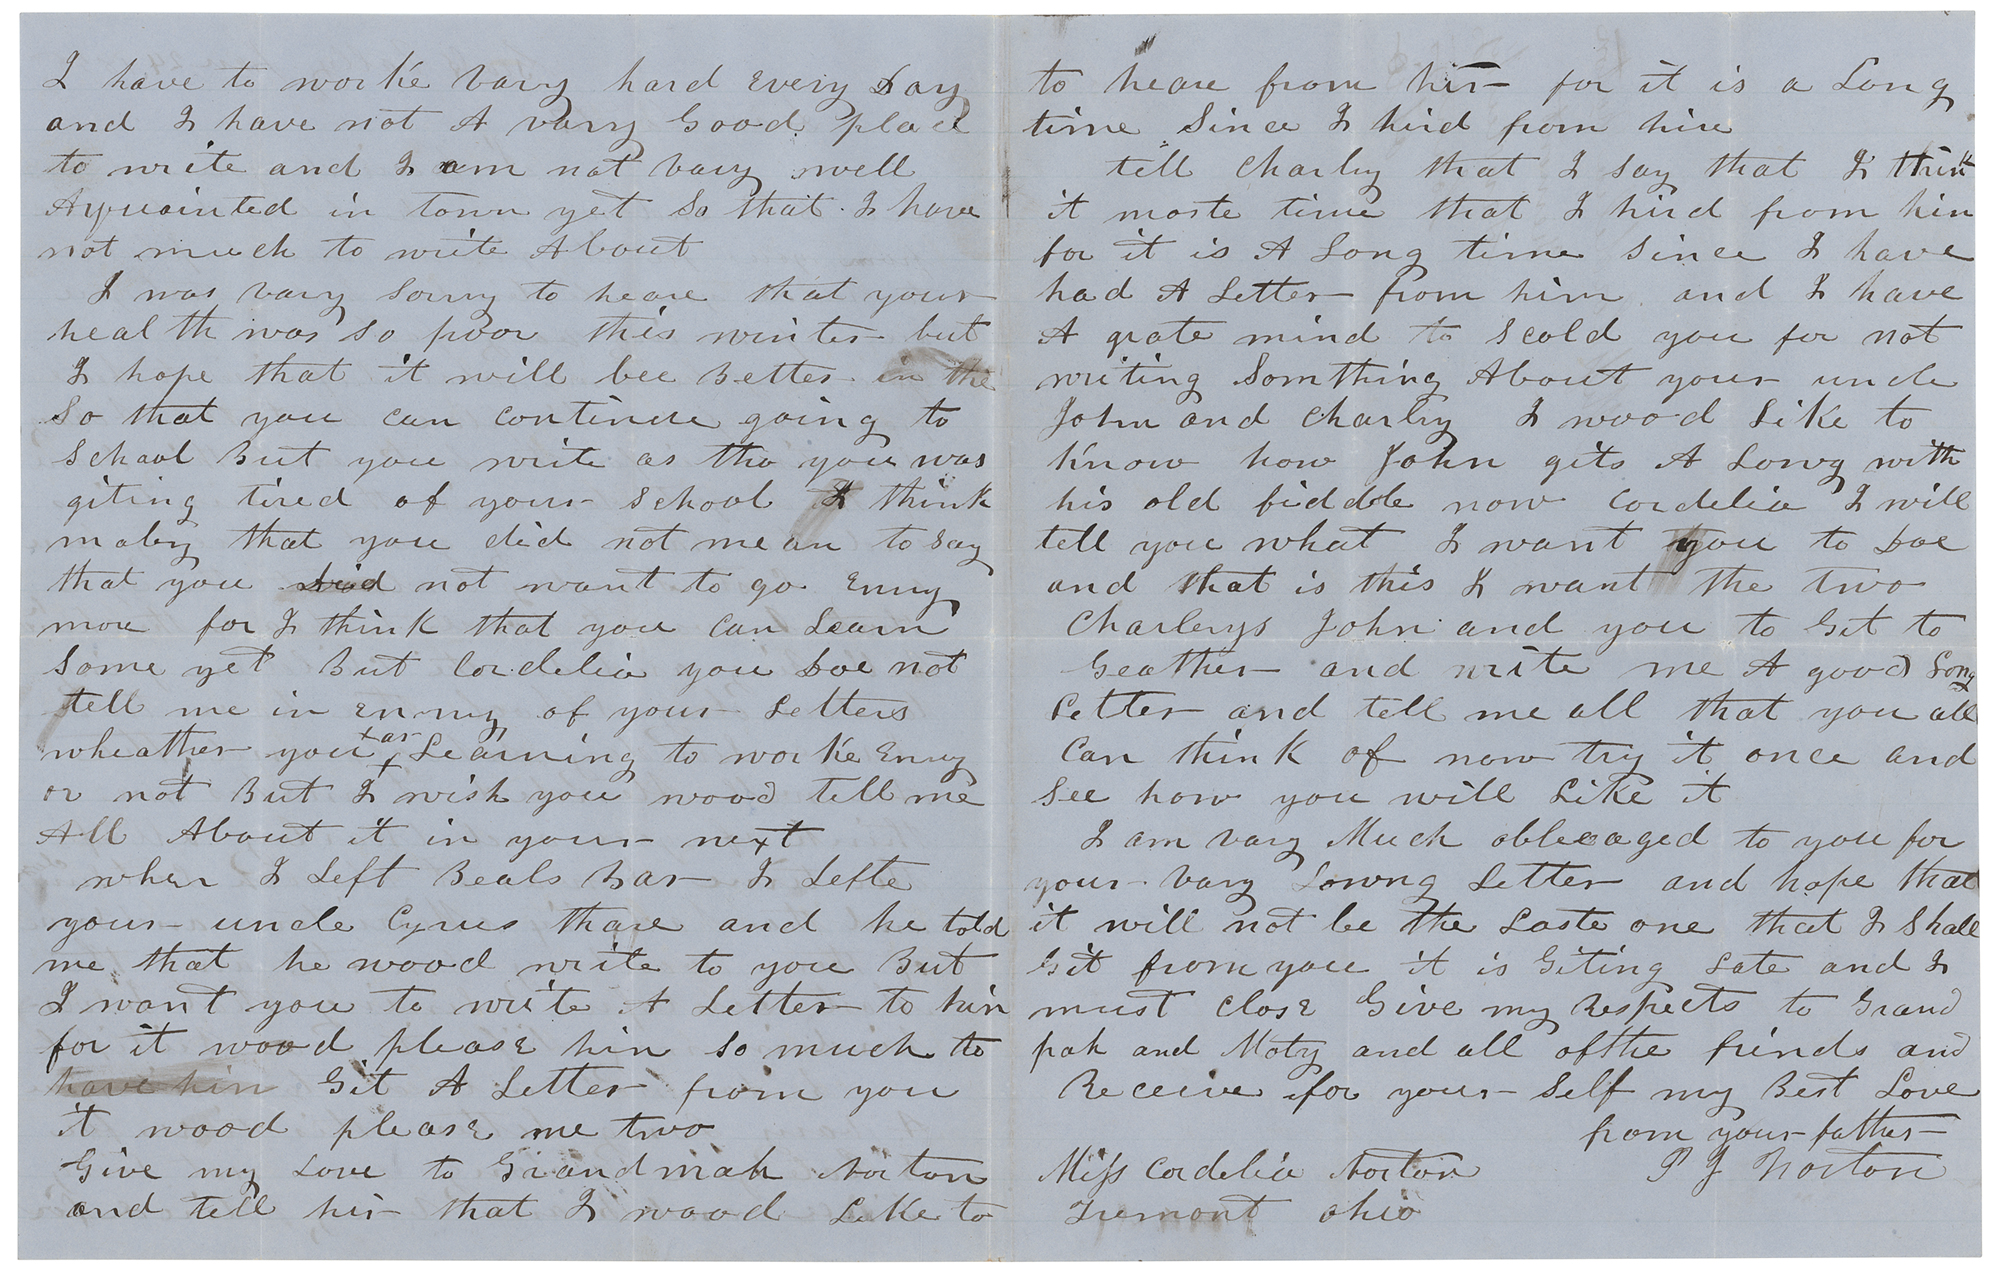 I have to worke vary hard Every Day
and I have not A vary Good place
to write and I am not vary well
Aquainted in town yet So that I have
not much to write About
I was vary Sorry to heare that your
health was so poor this winter but
I hope that it will bee Better in the
So that you can continue going to
School But you write as tho you was
giting tired of your School I think
maby that you did not mean to say
that you Did not want to go Enny
more for I think that you can Learn
Some yet But Cordelia you Doe not
tell me in Enny of your Letters
wheather you ar Learning to worke Enny
or not But I wish you wood tell me
All About it in your next
when I Left Beals Bar I Lefte
your uncle Cyrus thare and he told
me that he wood write to you But
I want you to write A Letter to him
for it wood please him So much to
have him Git A Letter from you
it wood please me two
Give my Love to Grandmah Norton
and tell hir that I wood Like to
to heare from hir for it is a Long
time Since I hird from hir
tell Charley that I say that I think
it moste time that I hird from him
for it is A Long time Since I have
had A Letter from him and I have
A grate mind to Scold you for not
writing Somthing About your uncle
John and Charley I wood Like to
Know how John gits A Long with
his old fiddle now Cordelia I will
tell you what I want you to Doe
and that is this I want the two
Charleys John and you to Git to
Geather and write me A good Long
Letter and tell me all that you all
Can think of now try it once and
See how you will Like it
I am vary Much obleeaged to you for
your vary Loving Letter and hope that
it will not be the Laste one that I Shall
Git from you it is Giting Late and I
must Close Give my Respects to Grand
pah and Moty and all of the frinds and
Receive for your Self my Best Love
from your father
P J Norton
Miss Cordelia Norton
Tremont Ohio